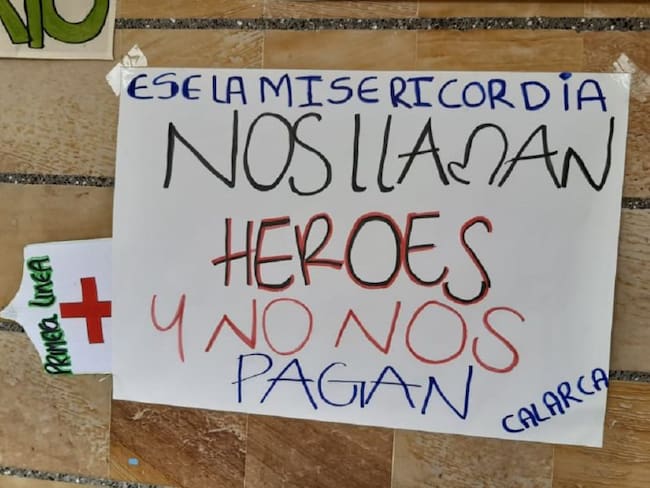 ESE LA MISERICORDIA
NOS LLAMAN
HEROES
Y NO NOS
PAGAN
CALARCA
PRIMERA LINEA